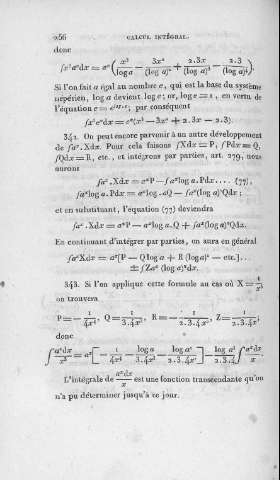 256 CALCUL INTÉGRAL.
donc
∫x³aˣdx = aˣ ( x³/log a − 3x²/(log a)² + 2.3x/(log a)³ − 2.3/(log a)⁴ ).
Si l'on fait a égal au nombre e, qui est la base du système
népérien, log a devient log e; or, log e = 1, en vertu de
par conséquent
∫x³eˣdx = eˣ(x³ − 3x² + 2.3x − 2.3).
342. On peut encore parvenir à un autre développement
de ∫aˣ.Xdx. Pour cela faisons ∫Xdx = P, ∫Pdx = Q,
∫Qdx = R, etc., et intégrons par parties, art. 279, nous
aurons
∫aˣ.Xdx = aˣP − ∫aˣlog a.Pdx.... (77),
∫aˣlog a.Pdx = aˣlog a.Q − ∫aˣ(log a)²Qdx;
et en substituant, l'équation (77) deviendra
∫aˣ.Xdx = aˣP − aˣlog a.Q + ∫aˣ(log a)²Qdx.
En continuant d'intégrer par parties, on aura en général
∫aˣXdx = aˣ[P − Q log a + R (log a)² − etc.]...
± ∫Zaˣ (log a)ⁿdx.
343. Si l'on applique cette formule au cas où X = 1/x⁵
on trouvera
P = − 1/4x⁴, Q = 1/3.4x³, R = − 1/2.3.4x², Z = 1/2.3.4x;
donc
∫aˣdx/x⁵ = aˣ [ − 1/4x⁴ − log a/3.4x³ − log a²/2.3.4x² ] − log a³/2.3.4 ∫aˣdx/x
L'intégrale de aˣdx/x est une fonction transcendante qu'on
n'a pu déterminer jusqu'à ce jour.